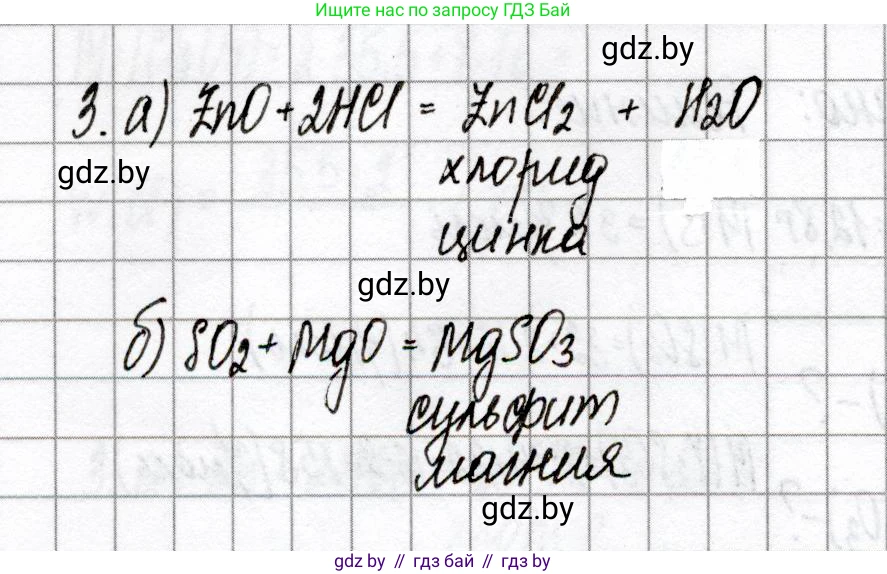 Ищите нас по запросу ГДЗ Бай
gdz.by
3. а) ZnO + 2HCl = ZnCl₂ + H₂O
gdz.by
хлорид
цинка
gdz.by
б) SO₂ + MgO = MgSO₃
сульфит
магния
gdz.by
gdz.by // гдз бай // gdz by